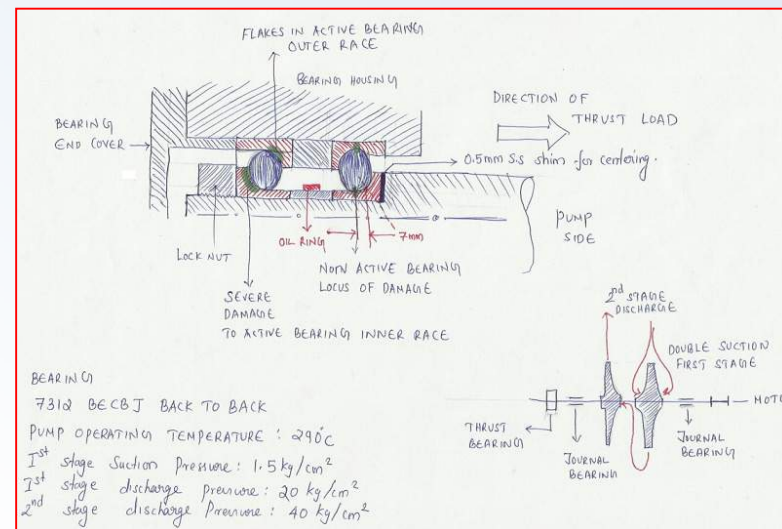 FLAKES IN ACTIVE BEARING
OUTER RACE
BEARING HOUSING
DIRECTION OF
THRUST LOAD
BEARING
END COVER
0.5mm S.S shim for centering.
PUMP
SIDE
LOCK NUT
OIL RING
7mm
NON ACTIVE BEARING
LOCUS OF DAMAGE
SEVERE
DAMAGE
TO ACTIVE BEARING INNER RACE
2nd STAGE
DISCHARGE
DOUBLE SUCTION
FIRST STAGE
MOTO
THRUST
BEARING
JOURNAL
BEARING
JOURNAL
BEARING
BEARING
7312 BECBJ BACK TO BACK
PUMP OPERATING TEMPERATURE : 290°C
Ist stage Suction Pressure : 1.5 kg/cm2
Ist stage discharge pressure : 20 kg/cm2
2nd stage discharge Pressure : 40 kg/cm2